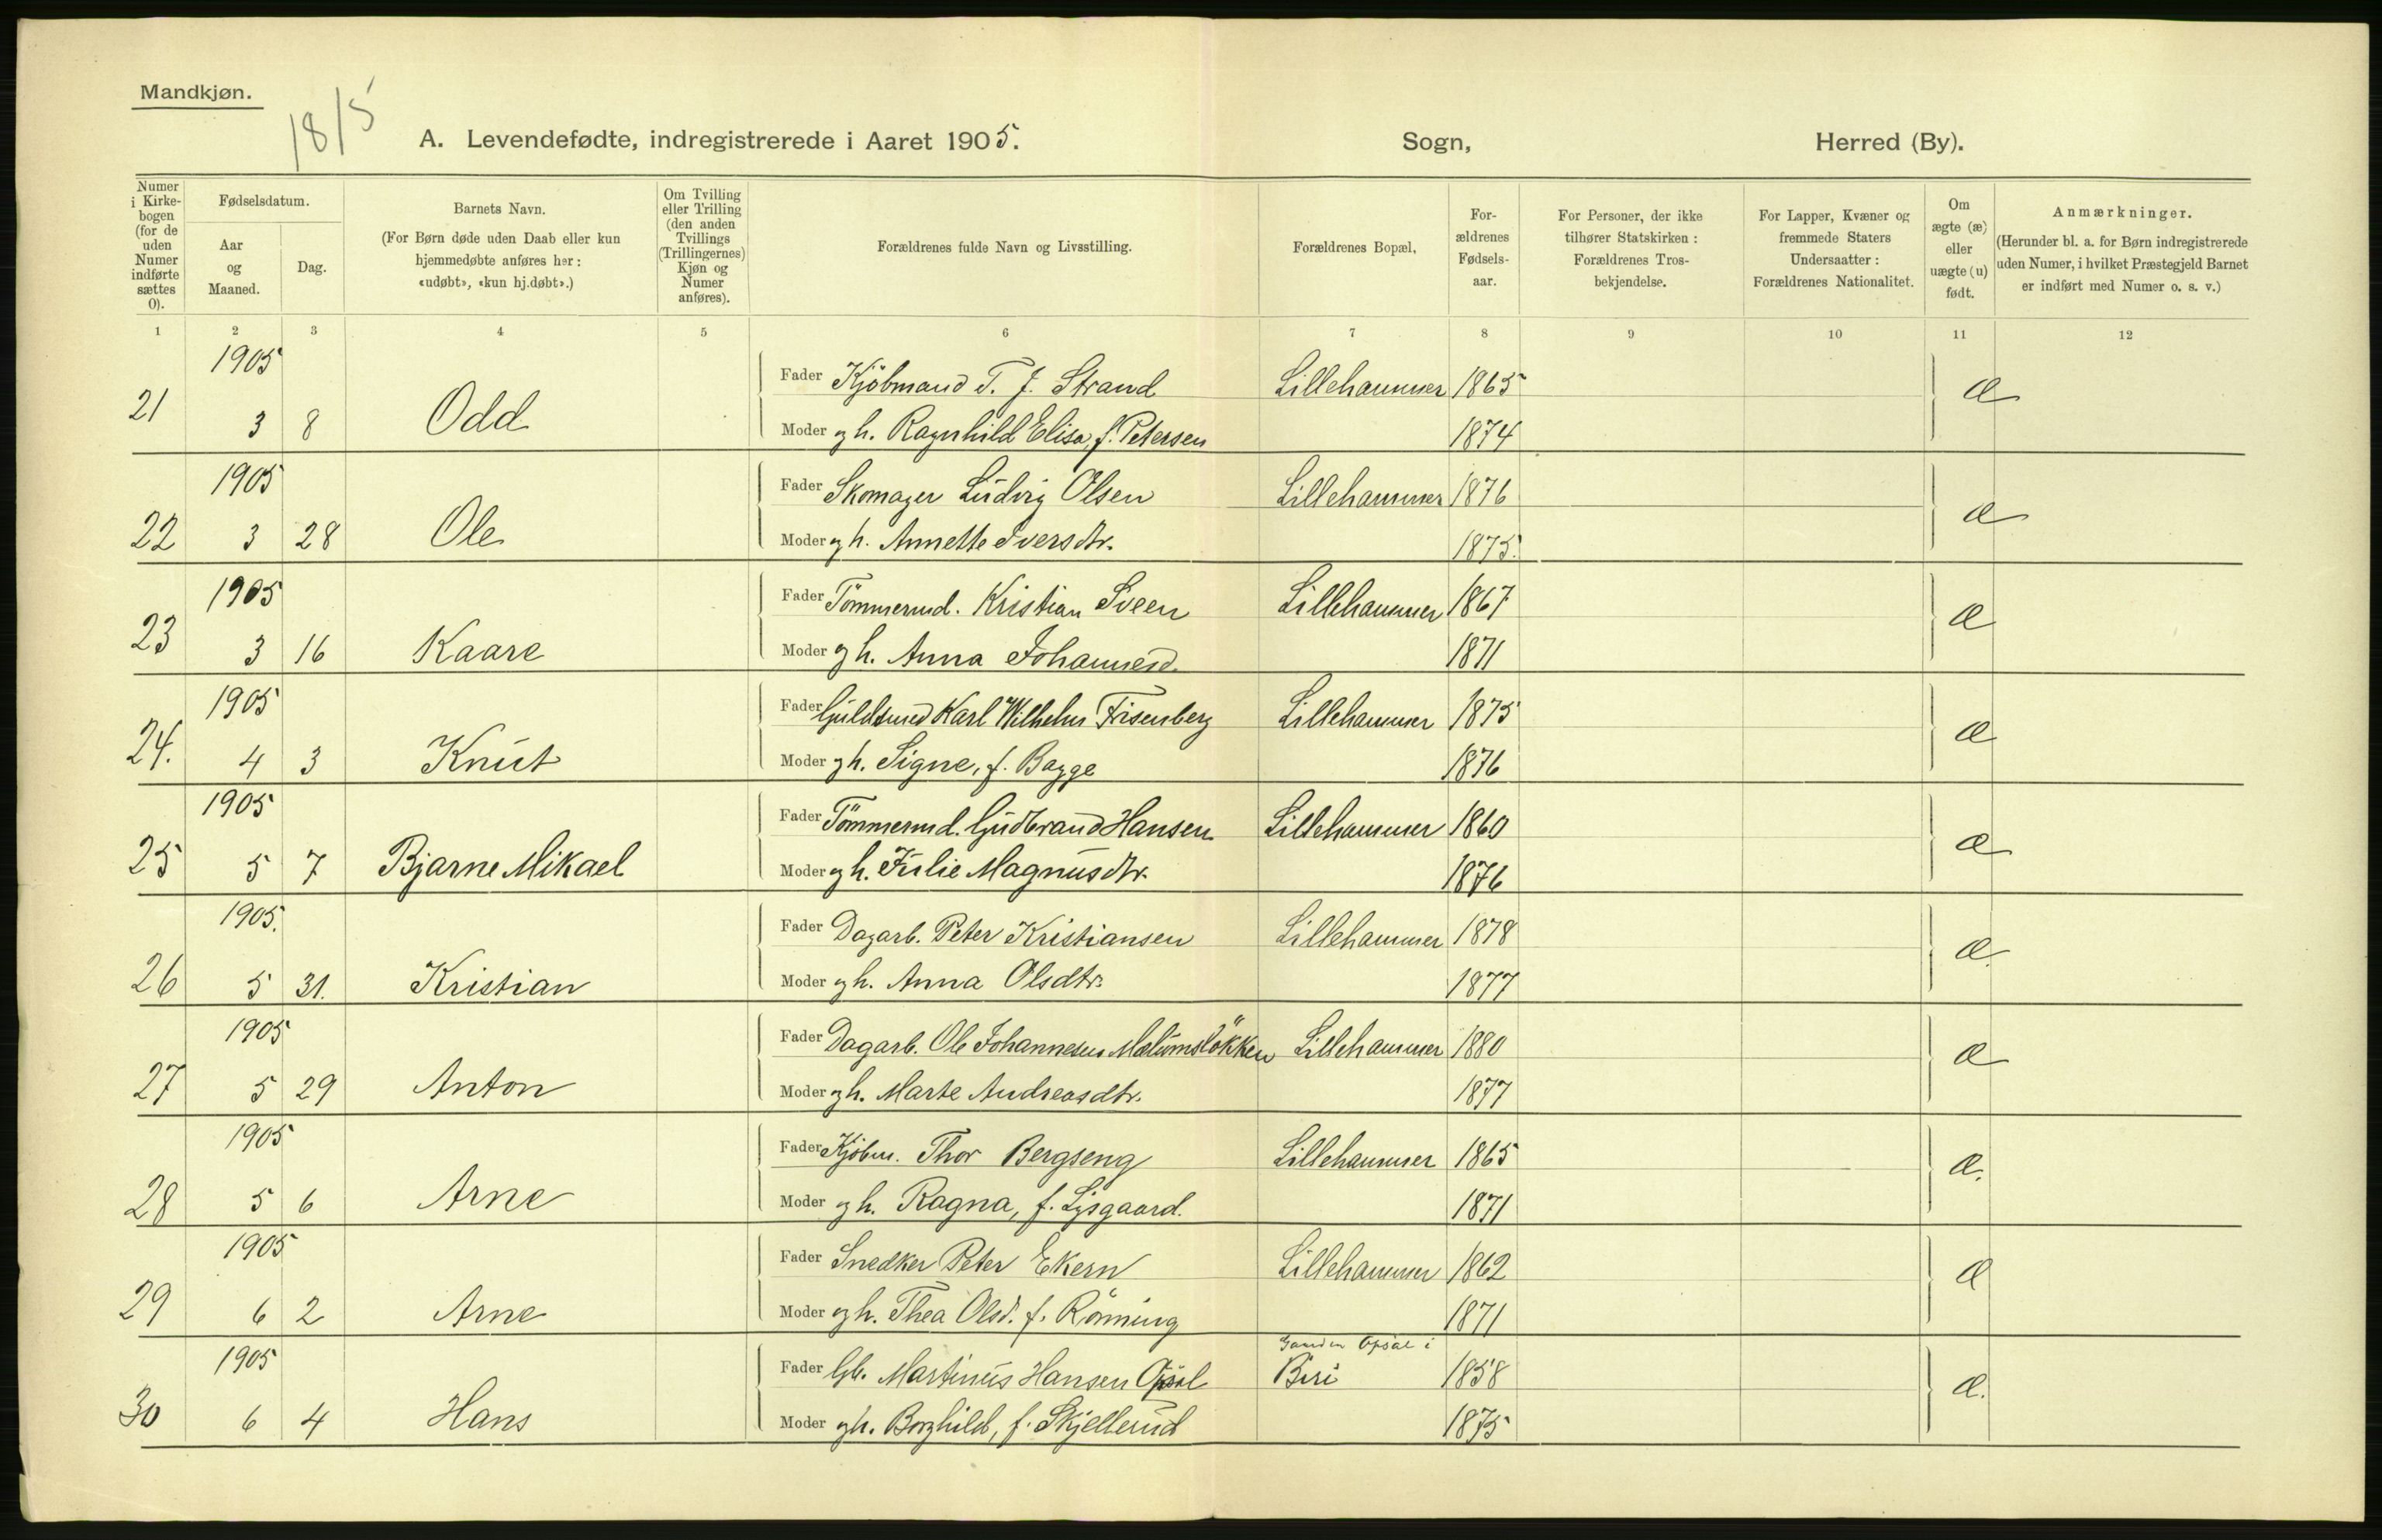 Mandkjøn.
18/5
A. Levendefødte, indregistrerede i Aaret 1905. Sogn, Herred (By).
Numer i Kirkebogen (for de uden Numer indførte sættes 0).
Fødselsdatum.
Aar og Maaned.
Dag.
Barnets Navn.
(For Børn døde uden Daab eller kun hjemmedøbte anføres her: «udøbt», «kun hj.døbt».)
Om Tvilling eller Trilling (den anden Tvillings (Trillingernes) Kjøn og Numer anføres).
Forældrenes fulde Navn og Livsstilling.
Forældrenes Bopæl,
Forældrenes Fødselsaar.
For Personer, der ikke tilhører Statskirken: Forældrenes Trosbekjendelse.
For Lapper, Kvæner og fremmede Staters Undersaatter: Forældrenes Nationalitet.
Om ægte (æ) eller uægte (u) født.
Anmærkninger.
(Herunder bl. a. for Børn indregistrerede uden Numer, i hvilket Præstegjeld Barnet er indført med Numer o. s. v.)
1 2 3 4 5 6 7 8 9 10 11 12
1905 Fader Kjöbmand T. J. Strand Lillehammer 1865 æ
21 3 8 Odd Moder gh. Ragnhild Elisa, f. Petersen 1874
1905 Fader Skomager Ludvig Olsen Lillehammer 1876 æ
22 3 28 Ole Moder gh. Annette Iversdtr. 1875.
1905 Fader Tömmermd. Kristian Sveen Lillehammer 1867 æ
23 3 16 Kaare Moder gh. Anna Johannesd. 1871
1905 Fader Guldsmed Karl Wilhelm Frisenberg Lillehammer 1875 æ
24. 4 3 Knut Moder gh. Signe, f. Bagge 1876
1905 Fader Tömmermd. Gudbrand Hansen Lillehammer 1860 æ
25 5 7 Bjarne Mikael Moder gh. Julie Magnusdtr. 1876
1905. Fader Dagarb. Peter Kristiansen Lillehammer 1878 æ.
26 5 31. Kristian Moder gh. Anna Olsdtr. 1877
1905 Fader Dagarb. Ole Johannesen Mælumslökken Lillehammer 1880 æ
27 5 29 Anton Moder gh. Marte Andreasdtr. 1877
1905 Fader Kjöbm. Thor Bergseng Lillehammer 1865 æ.
28 5 6 Arne Moder gh. Ragna, f. Lysgaard. 1871
1905 Fader Snedker Peter Ekern Lillehammer 1862 æ
29 6 2 Arne Moder gh. Thea Olsd. f. Rönning 1871
Gaarden Opsal i
1905 Fader Gb. Martinus Hansen Opsal Biri 1858 æ.
30 6 4 Hans Moder gh. Borghild, f. Skjellerud 1875